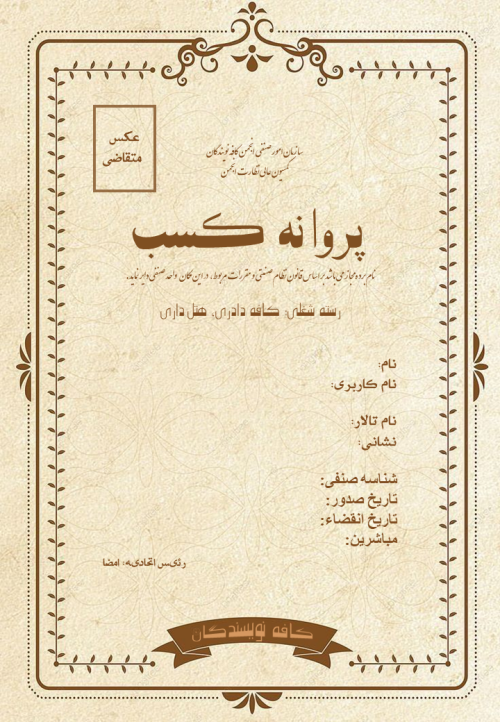 عکس
متقاضی
سازمان امور صنفی انجمن کافه نویسندگان
کمیسیون عالی نظارت انجمن
پروانه کسب
نام برده مجاز می باشد بر اساس قانون نظام صنفی و مقررات مربوط، در این مکان واحد صنفی دایر نماید.
رسته شغلی: کافه دادری، هتل داری
نام:
نام کاربری:
نام تالار:
نشانی:
شناسه صنفی:
تاریخ صدور:
تاریخ انقضاء:
مباشرین:
رئیس اتحادیه: امضا
کافه نویسندگان